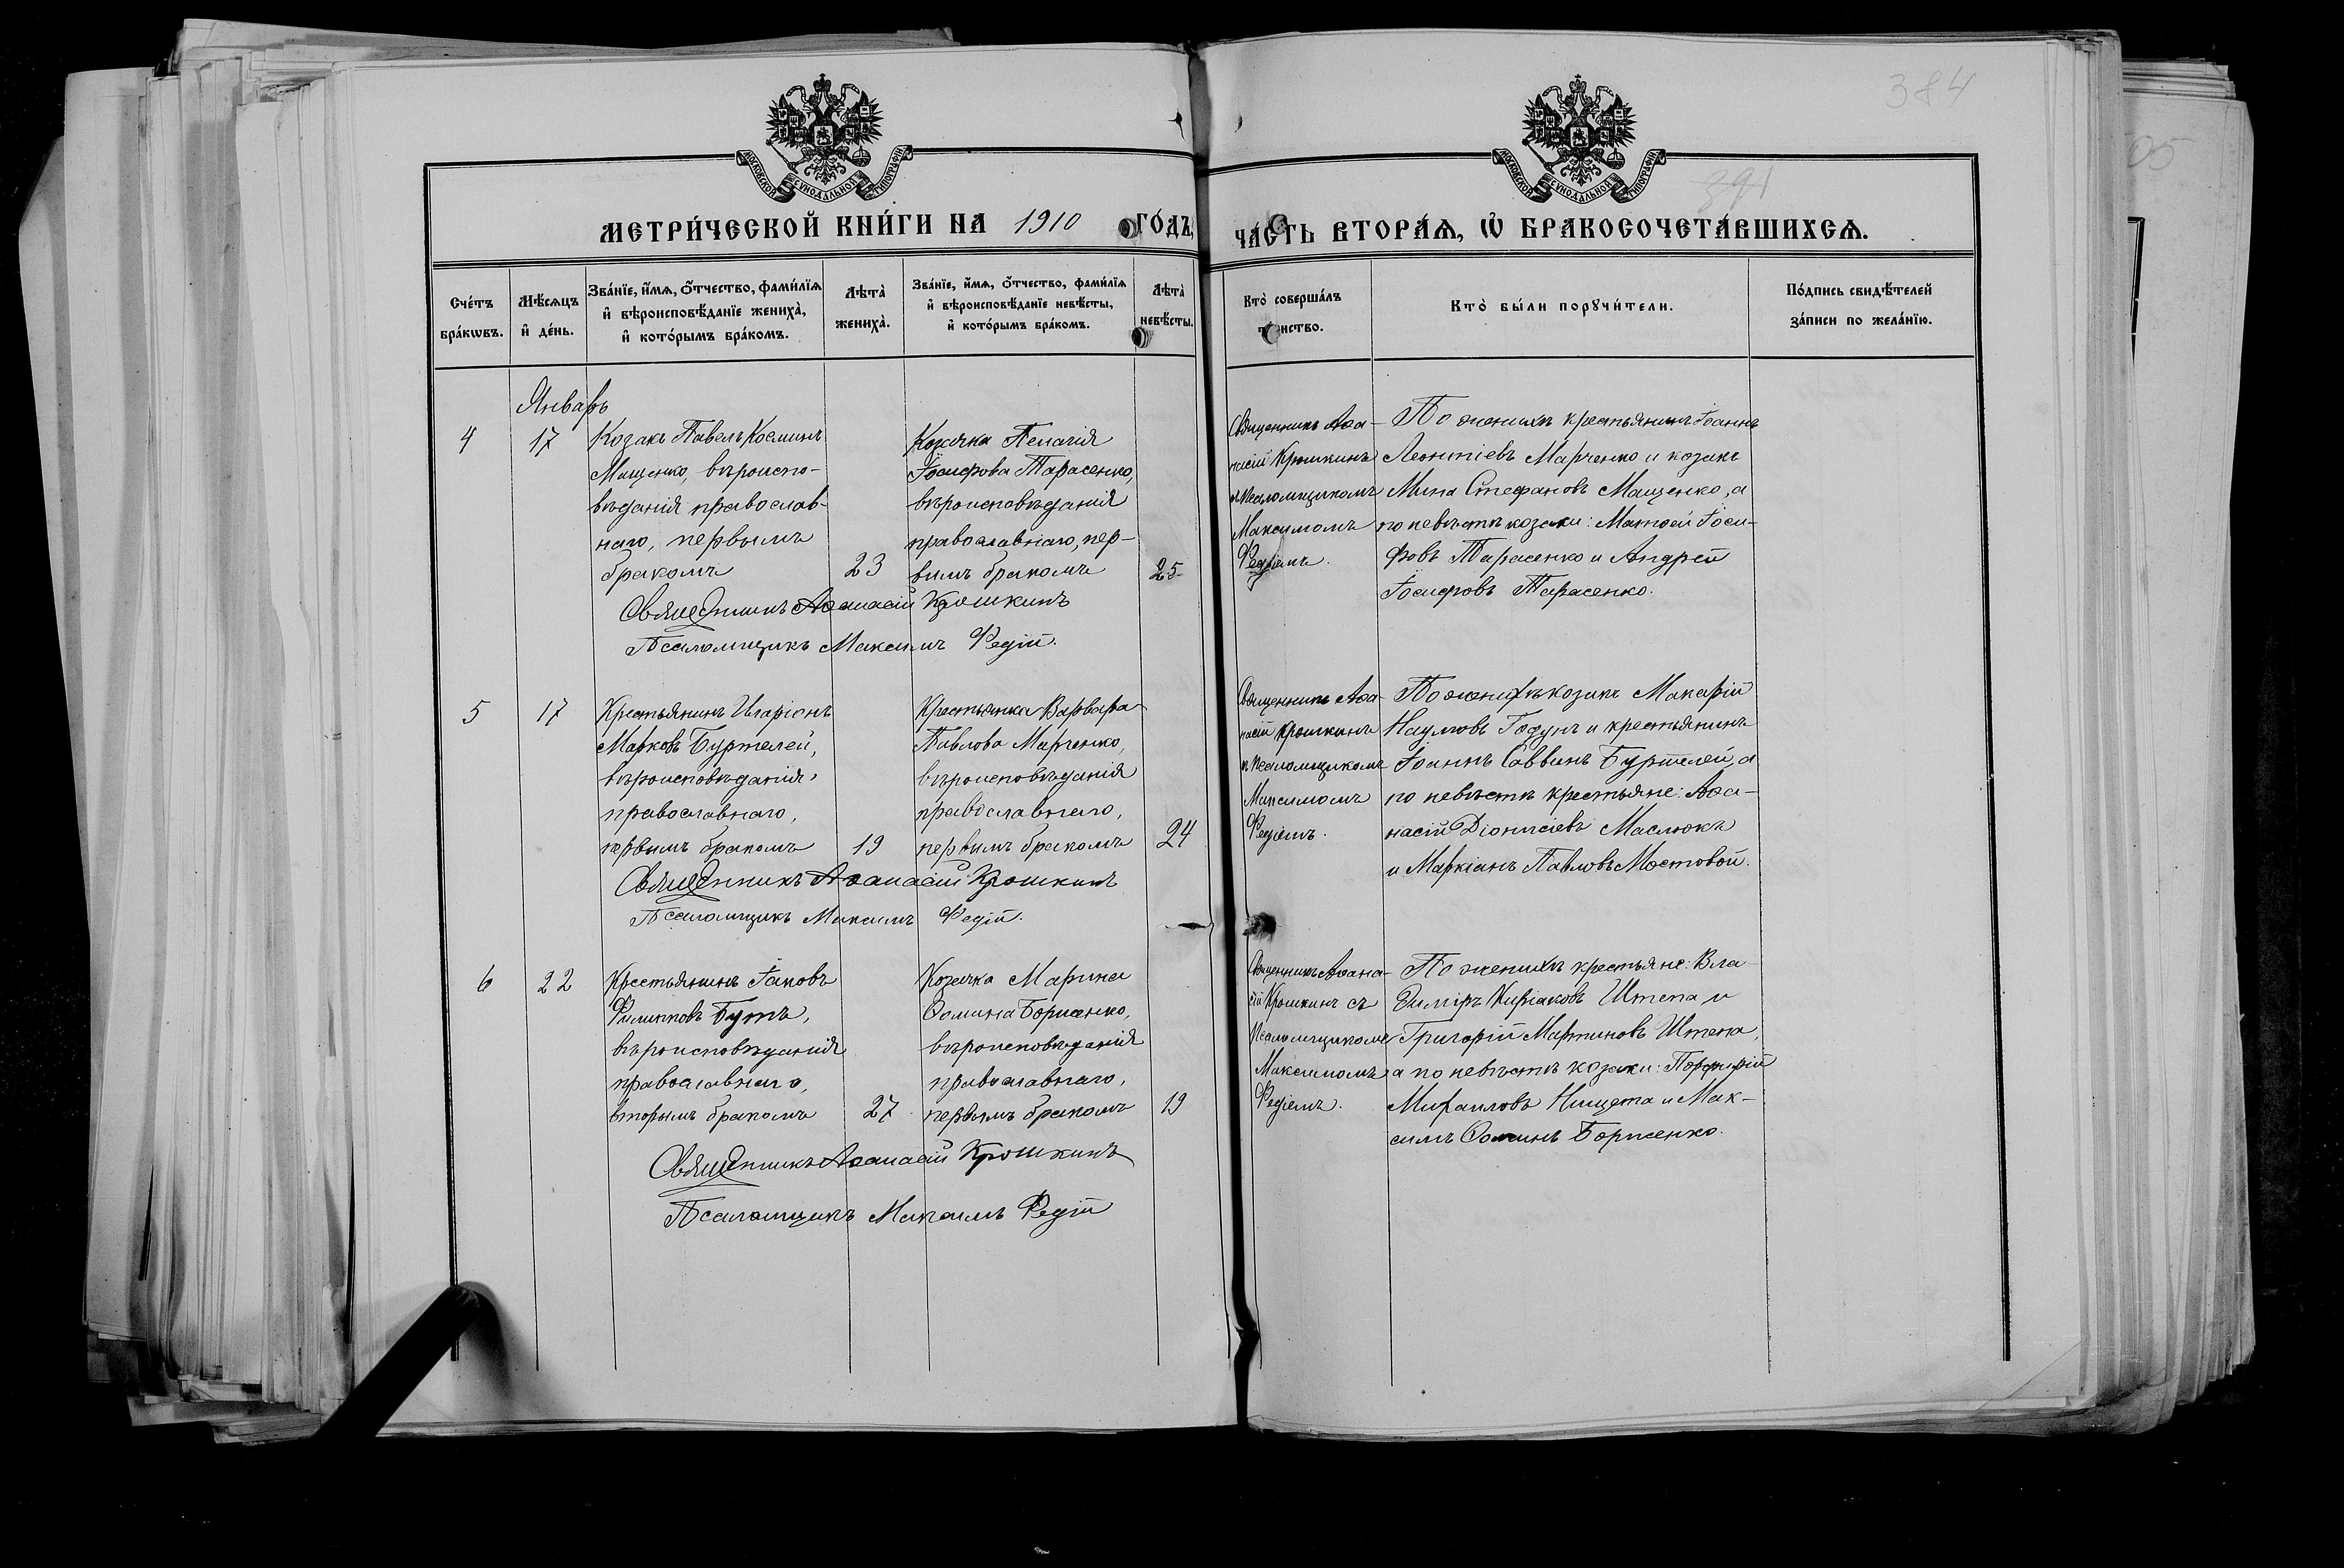 384
391
05
МОСКОВСКОЙ СѴНОДАЛЬНОЙ ТИПОГРАФІИ
МОСКОВСКОЙ СѴНОДАЛЬНОЙ ТИПОГРАФІИ
МЕТРИ́ЧЕСКОЙ КНИ́ГИ НА 1910 ГО́ДЪ,
ЧА́СТЬ ВТОРА́Ѧ, Ѽ БРАКОСОЧЕТА́ВШИХСѦ.
Сче́тъ
бра́кѡвъ.
Мѣ́сѧцъ
и҆ де́нь.
Зва́нїе, и҆́мѧ, ѻ҆́тчество, фами́лїѧ
и҆ вѣроисповѣ́данїе жениха̀,
и҆ кото́рымъ бра́комъ.
Лѣта̀
жениха̀.
Зва́нїе, и҆́мѧ, ѻ҆́тчество, фами́лїѧ
и҆ вѣроисповѣ́данїе невѣ́сты,
и҆ кото́рымъ бра́комъ.
Лѣта̀
невѣ́сты.
Кто̀ соверша́лъ
Кто̀ бы́ли порꙋчи́тели.
По́дпись свидѣ́телей
за́писи по жела́нїю.
Январь
4
17
Козакъ Павелъ Косминъ
Мащенко, вѣроиспо-
вѣданія православ-
наго, первымъ
бракомъ
23
Козачка Пелагія
Іосифова Тарасенко,
вѣроисповѣданія
православнаго, пер-
вымъ бракомъ
25
Священникъ Аѳа-
насій Крошкинъ
съ псаломщикомъ
Максимомъ
Редіемъ.
По женихѣ крестьянинъ Іоаннъ
Леонтіевъ Марченко и козакъ
Мина Стефановъ Мащенко, а
по невѣстѣ козаки: Матѳей Іоси-
фовъ Тарасенко и Андрей
Іосифовъ Тарасенко.
Священникъ Аѳанасій Крошкинъ
Псаломщикъ Максимъ Редій.
5
17
Крестьянинъ Иларіонъ
Марковъ Буртелей,
вѣроисповѣданія
православнаго,
первымъ бракомъ
19
Крестьянка Варвара
Павлова Марченко,
вѣроисповѣданія
православнаго,
первымъ бракомъ
24
Священникъ Аѳа-
насій Крошкинъ
съ псаломщикомъ
Максимомъ
Редіемъ.
По женихѣ козакъ Макарій
Наумовъ Годунъ и крестьянинъ
Іоаннъ Саввинъ Буртелей, а
по невѣстѣ крестьяне: Аѳа-
насій Діонисіевъ Маслюкъ
и Маркіанъ Павловъ Мостовой.
Священникъ Аѳанасій Крошкинъ
Псаломщикъ Максимъ Редій.
6
22
Крестьянинъ Іаковъ
Филипповъ Бутъ,
вѣроисповѣданія
православнаго,
вторымъ бракомъ
27
Козачка Марина
Ѳомина Борисенко,
вѣроисповѣданія
православнаго,
первымъ бракомъ
19
Священникъ Аѳана-
сій Крошкинъ съ
псаломщикомъ
Максимомъ
Редіемъ.
По женихѣ крестьяне: Вла-
диміръ Киріаковъ Штепа и
Григорій Мартиновъ Штепа,
а по невѣстѣ козаки: Порфирій
Михаиловъ Нищета и Мак-
симъ Ѳоминъ Борисенко.
Священникъ Аѳанасій Крошкинъ
Псаломщикъ Максимъ Редій